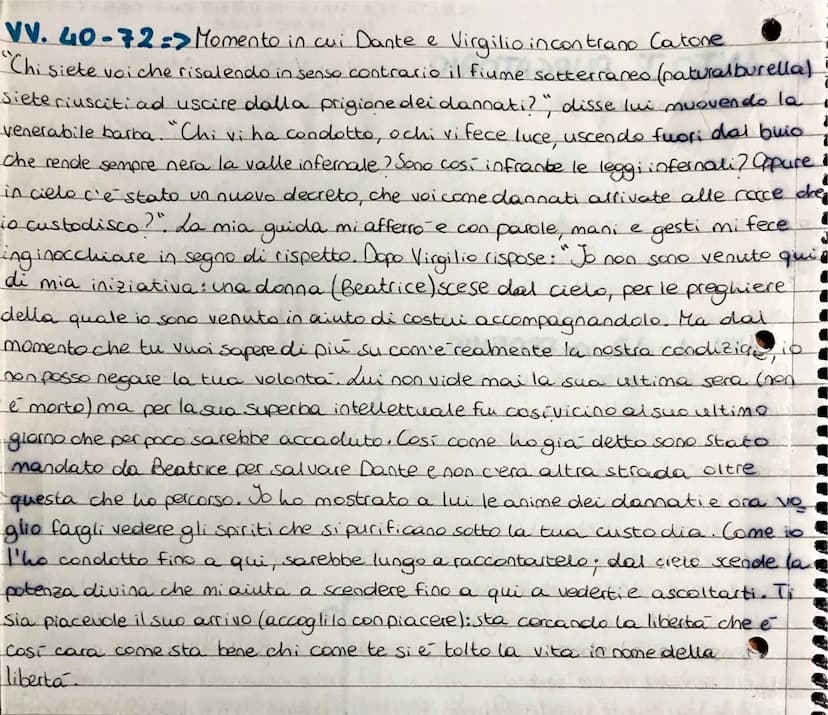 VV. 40-72=> Momento in cui Dante e Virgilio incontrano Catone
"Chi siete voi che risalendo in senso contrario il fiume sotterraneo (natural burella)
siete riusciti ad uscire dalla prigione dei dannati?", disse lui muovendo la
venerabile barba. "Chi vi ha condotto, o chi vi fece luce, uscendo fuori dal buio
che rende sempre nera la valle infernale? Sono così infrante le leggi infernali? Oppure
in cielo c'è stato un nuovo decreto, che voi come dannati arrivate alle rocce che
io custodisco?". La mia guida mi afferrò e con parole, mani e gesti mi fece
inginocchiare in segno di rispetto. Dopo Virgilio rispose: "Io non sono venuto qui
di mia iniziativa: una donna (Beatrice) scese dal cielo, per le preghiere
della quale io sono venuto in aiuto di costui accompagnandolo. Ma dal
momento che tu vuoi sapere di più su com'è realmente la nostra condizione, io
non posso negare la tua volontà. Lui non vide mai la sua ultima sera (non
è morto) ma per la sua superba intellettuale fu così vicino al suo ultimo
giorno che per poco sarebbe accaduto. Così come ho già detto sono stato
mandato da Beatrice per salvare Dante e non c'era altra strada oltre
questa che ho percorso. Io ho mostrato a lui le anime dei dannati e ora vo
glio fargli vedere gli spiriti che si purificano sotto la tua custodia. Come io
l'ho condotto fino a qui, sarebbe lungo a raccontartelo; dal cielo scende la
potenza divina che mi aiuta a scendere fino a qui a vederti e ascoltarti. Ti
sia piacevole il suo arrivo (accoglilo con piacere): sta cercando la libertà che è
così cara come sta bene chi come te si è tolto la vita in nome della
libertà.